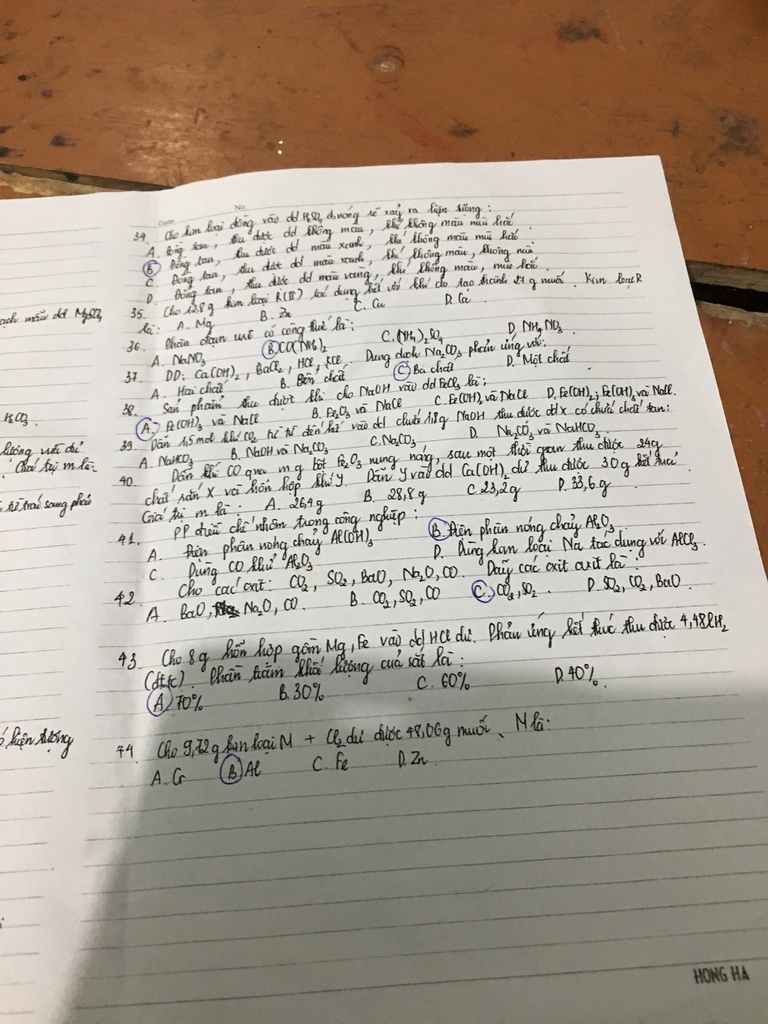 Date No.
34. Cho kim loại đồng vào dd H₂SO₄ đ,nóng sẽ xảy ra hiện tượng:
A. Đồng tan, thu được dd không màu, khí không màu mùi hắc
B. Đồng tan, thu được dd màu xanh, khí không màu mùi hắc.
C. Đồng tan, thu được dd màu xanh, khí không màu, không mùi
D. Đồng tan, thu được dd màu vàng, khí không màu, mùi hắc.
35. Cho 12,8g kim loại R(II) tác dụng hết với khí clo tạo thành 27g muối. Kim loại R
là: A. Mg B. Zn C. Cu D. Ca
36. Phân đạm urê có công thức là:
A. NaNO₃ B. CO(NH₂)₂ C. (NH₄)₂SO₄ D. NH₄NO₃
37. DD: Ca(OH)₂, BaCl₂, HCl, KCl. Dung dịch Na₂CO₃ phản ứng với:
A. Hai chất B. Bốn chất C. Ba chất D. Một chất
38. Sản phẩm thu được khi cho NaOH vào dd FeCl₃ là:
A. Fe(OH)₃ và NaCl B. Fe₂O₃ và NaCl C. Fe(OH)₂ và NaCl D. Fe(OH)₂; Fe(OH)₃ và NaCl.
39. Dẫn 1,5mol khí CO₂ từ từ đến hết vào dd chứa 118g NaOH thu được dd X có chứa chất tan:
A. NaHCO₃ B. NaOH và Na₂CO₃ C. Na₂CO₃ D. Na₂CO₃ và NaHCO₃
40. Dẫn khí CO qua m g bột Fe₂O₃ nung nóng, sau một thời gian thu được 24g
chất rắn X và hỗn hợp khí Y. Dẫn Y vào dd Ca(OH)₂ dư thu được 30g kết tủa
Giá trị m là: A. 26,4g B. 28,8g C. 23,2g D. 33,6g
41. PP điều chế nhôm trong công nghiệp:
A. Điện phân nóng chảy Al(OH)₃ B. Điện phân nóng chảy Al₂O₃
C. Dùng CO khử Al₂O₃ D. Dùng kim loại Na tác dụng với AlCl₃
42. Cho các oxit: CO₂, SO₂, BaO, Na₂O, CO. Dãy các oxit axit là:
A. BaO, Na₂O, CO. B. CO₂, SO₂, CO C. CO₂, SO₂. D. SO₂, CO₂, BaO.
43. Cho 8g hỗn hợp gồm Mg, Fe vào dd HCl dư. Phản ứng kết thúc thu được 4,48l H₂
(đktc). Phần trăm khối lượng của sắt là:
A. 70% B. 30% C. 60% D. 40%
44. Cho 9,72g kim loại M + Cl₂ dư được 48,06g muối. M là:
A. Cr B. Al C. Fe D. Zn
HONG HA
dd MgSO₄
H₂CO₃
lượng vừa đủ
Giá trị m là:
từ trái sang phải
hiện tượng